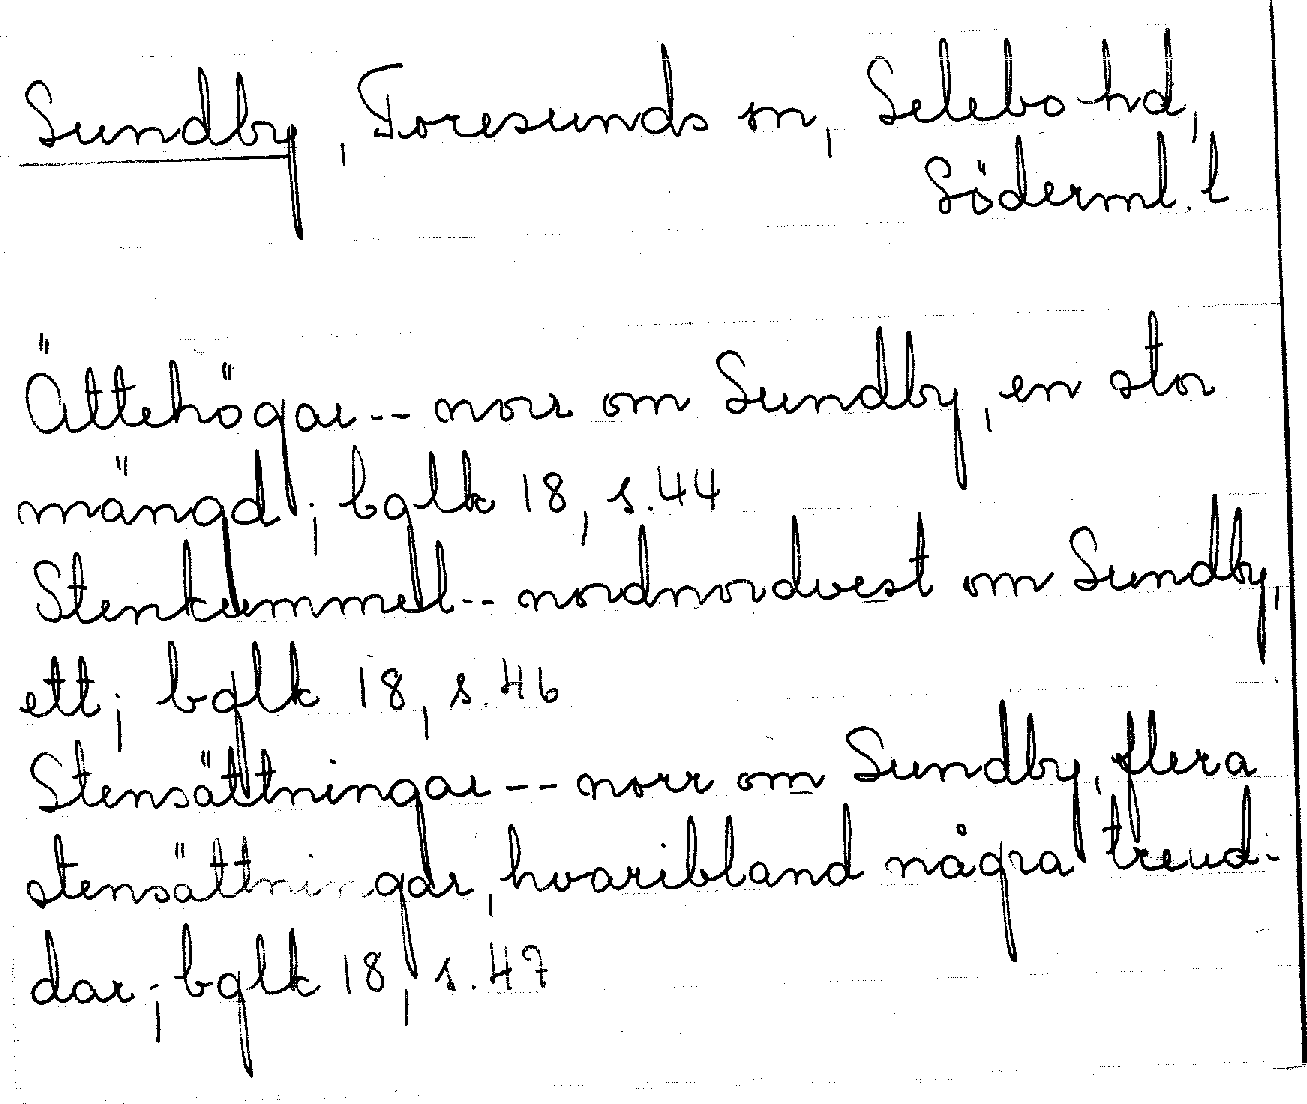 Sundby, Toresunds sn, Selebo hd,
Söderml. l
Ättehögar -- norr om Sundby, en stor
mängd; bglk 18, s. 44
Stenkummel -- nordnordvest om Sundby,
ett; bglk 18, s. 46
Stensättningar -- norr om Sundby, flera
stensättningar, hvaribland några treud-
dar; bglk 18, s. 47